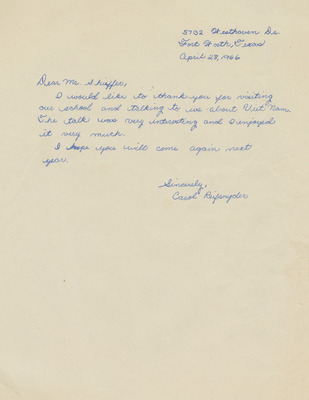 5732 Westhaven Dr.
Fort Worth, Texas
April 28, 1966
Dear Mr. Shiffer,
I would like to thank you for visiting
our school and talking to us about Viet Nam.
The talk was very interesting and I enjoyed
it very much.
I hope you will come again next
year.
Sincerely,
Carol Reifsnyder